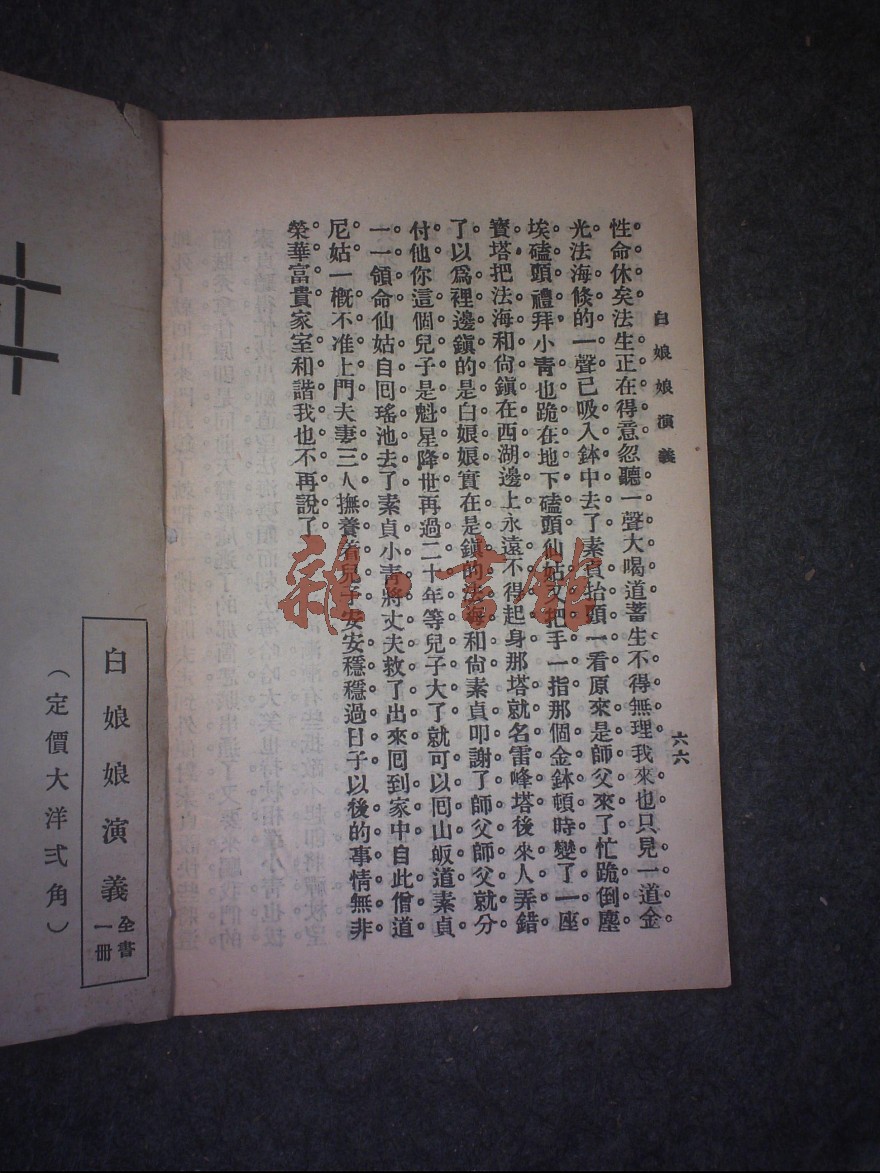 白娘娘演義
六六
性命休矣法生正在得意忽聽一聲大喝道蓄生不得無理我來也只見一道金
光法海倐的一聲已吸入鉢中去了素貞抬頭一看原來是師父來了忙跪倒塵
埃磕頭禮拜小靑也跪在地下磕頭仙姑又把手一指那個金鉢頓時變了一座
寳塔把法海和尙鎭在西湖邊上永遠不得起身那塔就名雷峰塔後來人弄錯
了以爲裡邊鎭的是白娘娘實在是鎭的法海和尙素貞叩謝了師父師父就分
付他你這個兒子是魁星降世再過二十年等兒子大了就可以囘山皈道素貞
一一領命仙姑自囘瑤池去了素貞小靑將丈夫救了出來囘到家中自此僧道
尼姑一槪不准上門夫妻三人撫養着兒子安安穩穩過日子以後的事情無非
榮華富貴家室和諧我也不再說了
白娘娘演義 全書一冊
（定價大洋弍角）
雜·书館